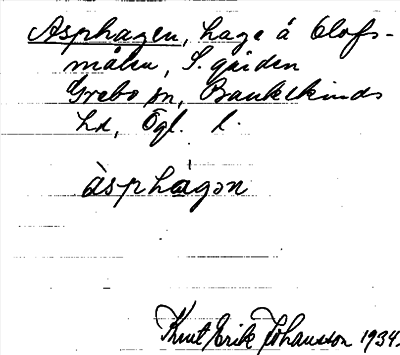 Asphagen, hage å Olofs-
målen, S. gården
Grebo sn, Bankekinds
hd, Ögl. l.
àsphàgən
Knut Erik Johansson 1934.